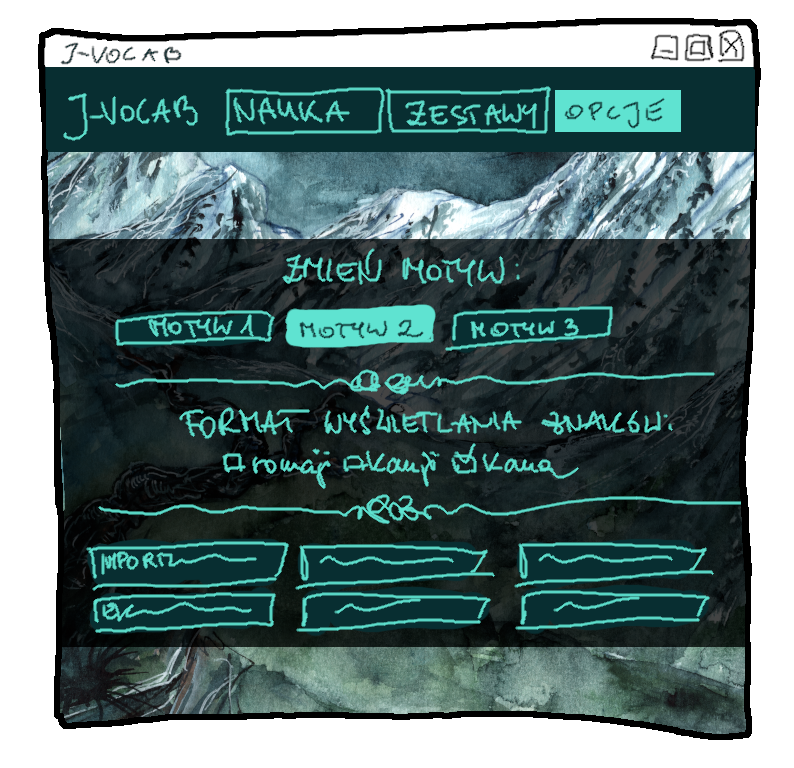 J-VOCAB
J-VOCAB NAUKA ZESTAWY OPCJE
ZMIEŃ MOTYW:
MOTYW 1 MOTYW 2 MOTYW 3
FORMAT WYŚWIETLANIA ZNAKÓW:
romaji kanji kana
IMPORT